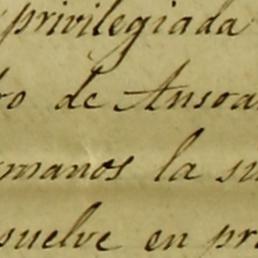 privilegiada
ro de Ansoa
rmanos la su
suelve en pr